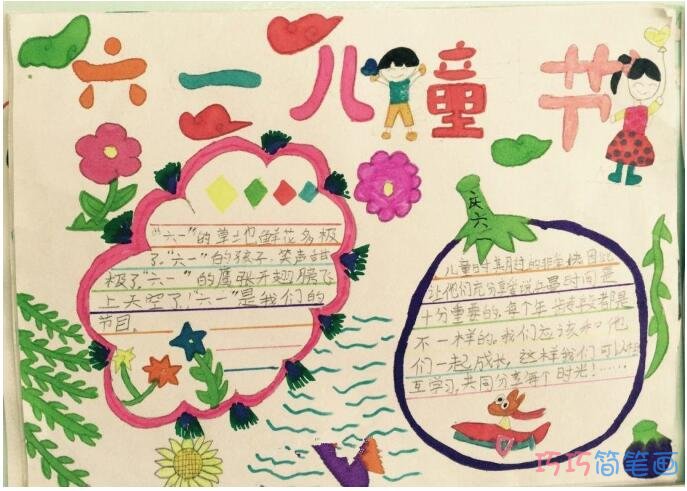 六一儿童节
"六一"的草地鲜花多极
了。"六一"的孩子,笑声甜
极了"六一"的鹰张开翅膀飞
上天空了!"六一"是我们的
节目。
庆六一
儿童时期过的非常快因此
让他们充分享受
时间是
十分重要的。每个年
都是
不一样的。我们应该和他
们一起成长,这样我们可以相
互学习,共同分享每个时光!……
巧巧简笔画